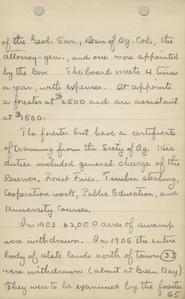 of the Geol. Sur., Dean of Ag. Col., the
attorney-gen., and one more appointed
by the Gov. The board meets 4 times
a year, with expenses. It appoints
a forester at $2500 and an assistant
at $1500.
The forester must have a certificate
of training from the Secty of Ag. His
duties included general charge of the
Reserve, Forest Fires, Timber stealing,
Cooperation work, Public Education, and
University Courses.
In 1903 62000 acres of swamp
were withdrawn. In 1905 the entire
body of state lands north of town 33
were withdrawn (about at Green Bay)
They were to be examined by the forester
65